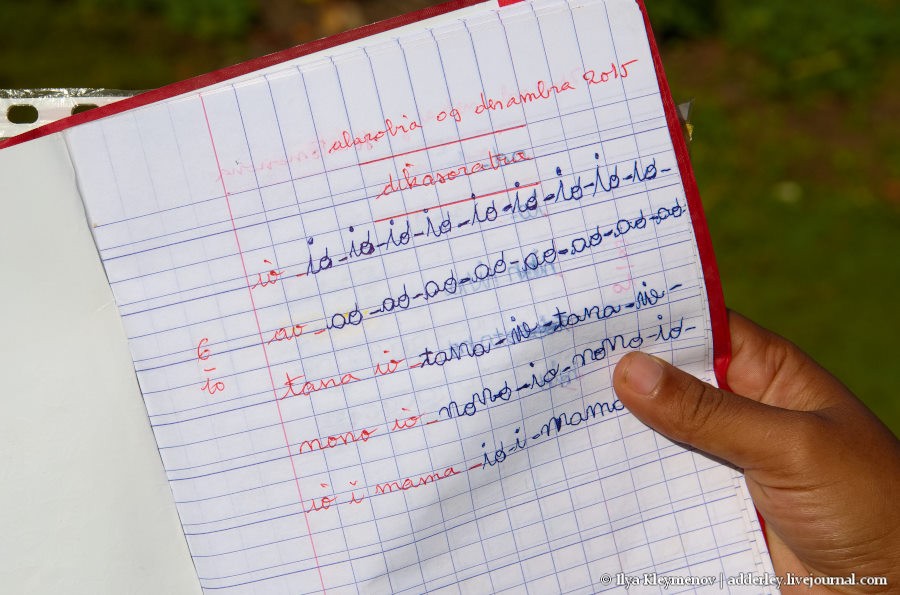 alarobia 09 desambra 2015
dikasoratra
iò - iò - iò - iò - iò - iò - iò - iò - iò - iò -
ao - ao - ao - ao - ao - ao - ao - ao - ao - ao
tana iò - tana - iò - tana - iò -
nono iò - nono - io - nono - iò -
iò i mama - iò i - mama
6
10
© Ilya Kleymenov | adderley.livejournal.com